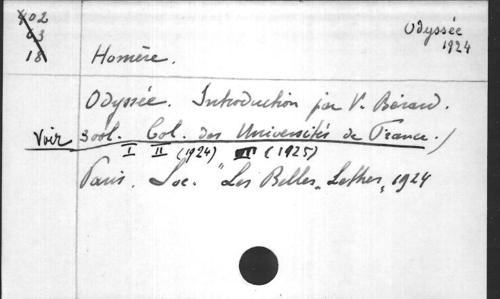 402
83
18
Odyssée
1924
Homère.
Odyssée. Introduction par V. Bérard.
Voir 3 vol. Col. des Universités de France. /
I II (1924) III (1925)
Paris. Soc. "Les Belles Lettres" 1924